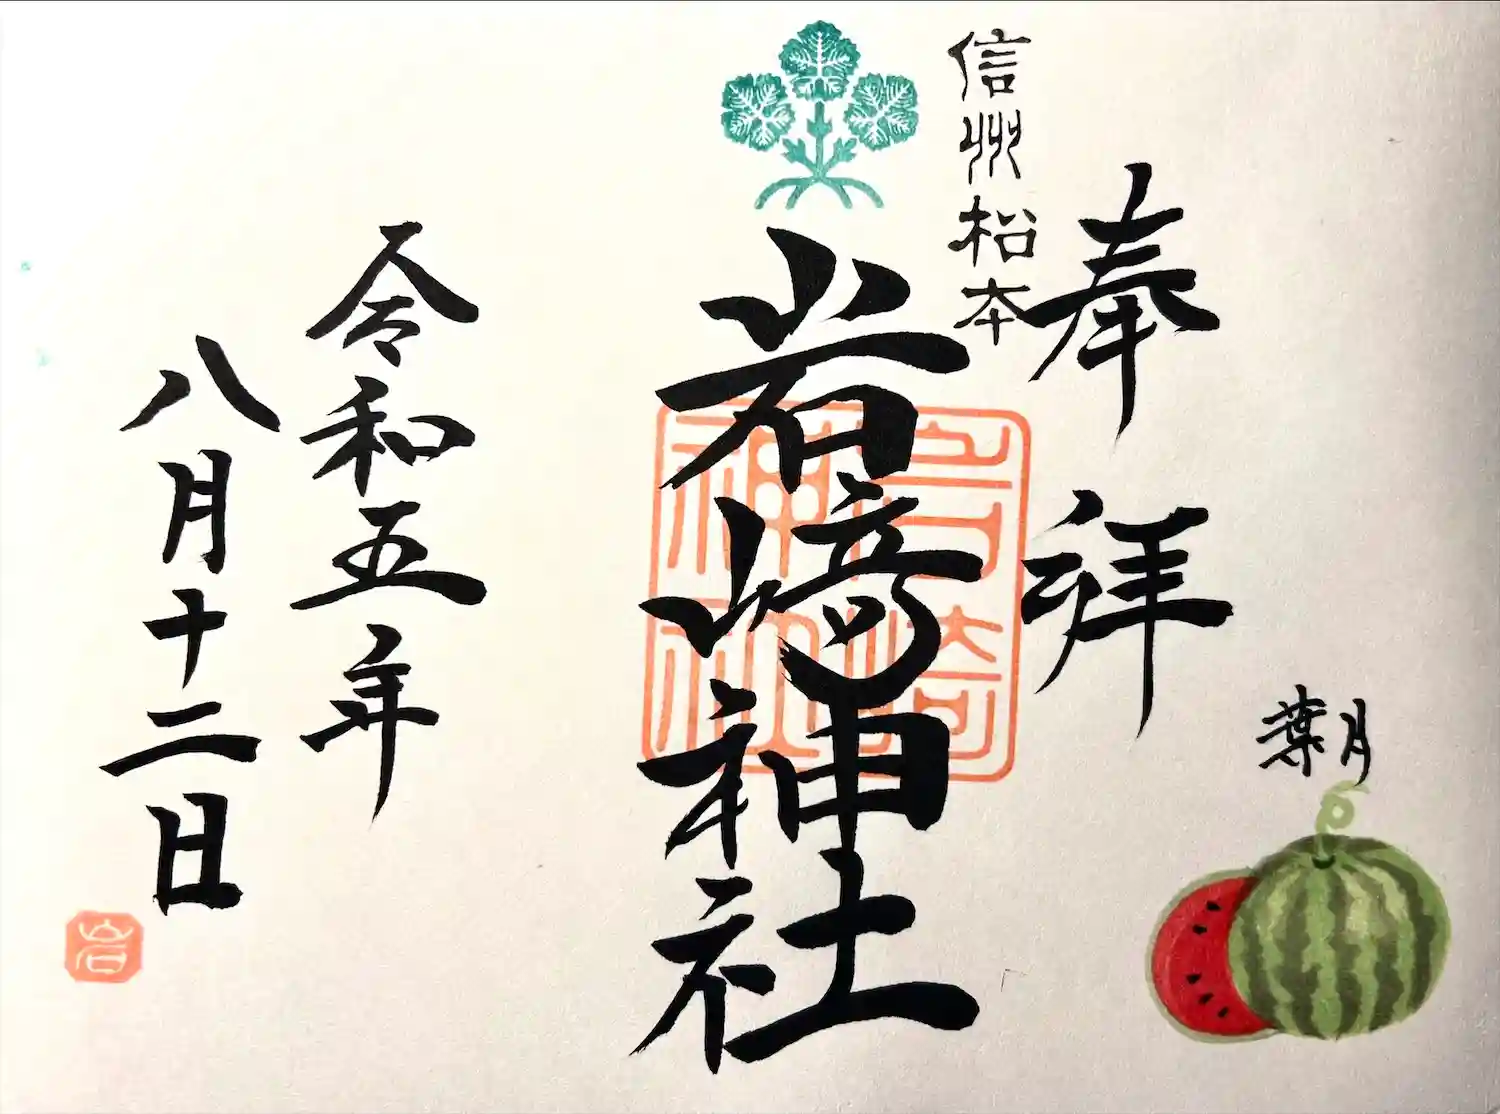 奉拝
信州松本
岩﨑神社
令和五年
八月十二日
葉月
岩崎神社
岩